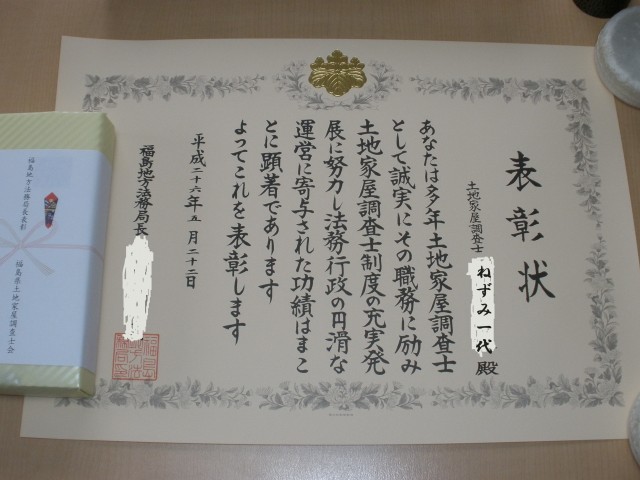 表彰状
土地家屋調査士
ねずみ一代 殿
あなたは多年土地家屋調査士
として、誠実にその職務に励み
土地家屋調査士制度の充実発
展に努力し法務行政の円滑な
運営に寄与された功績はまこ
とに顕著であります
よってこれを表彰します
平成二十六年五月二十二日
福島地方法務局長
福島地方法務局長表彰
福島県土地家屋調査士会